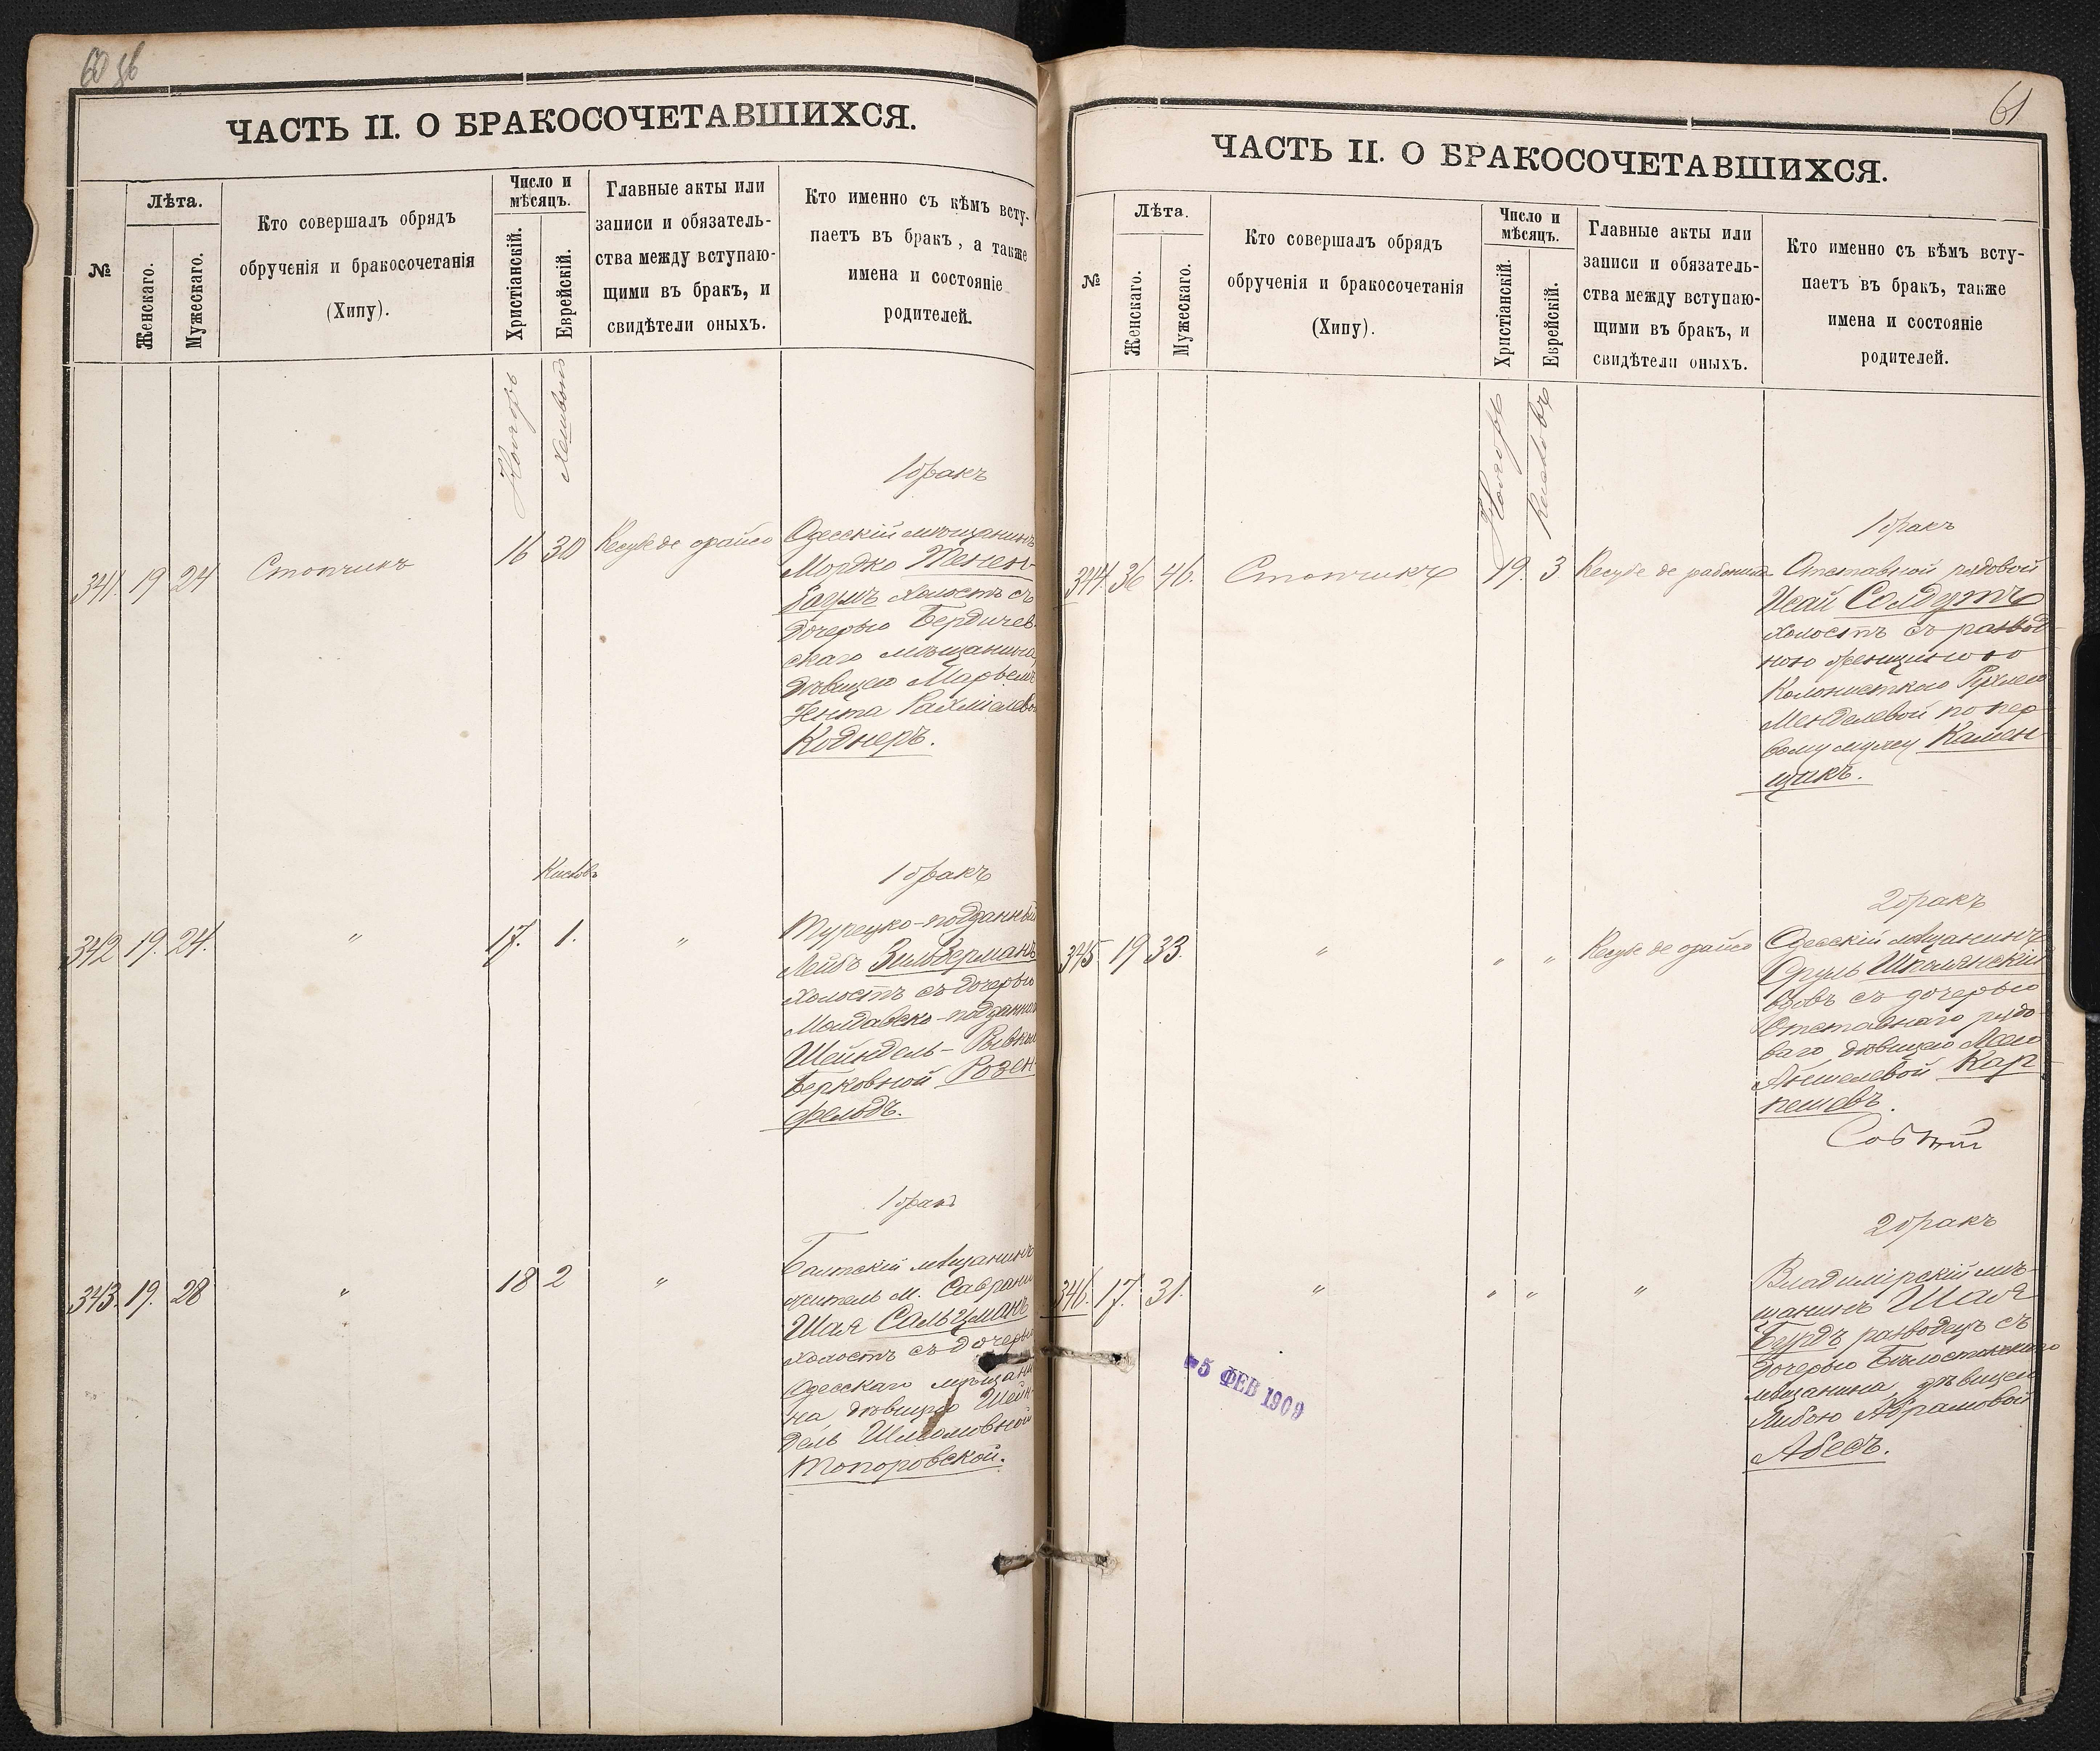 60 об
ЧАСТЬ II. О БРАКОСОЧЕТАВШИХСЯ.
№
Лѣта.
Женскаго.
Мужескаго.
Кто совершалъ обрядъ
обрученія и бракосочетанія
(Хипу).
Число и
мѣсяцъ.
Христіанскій.
Еврейскій.
Главные акты или
записи и обязатель-
ства между вступаю-
щими въ бракъ, и
свидѣтели оныхъ.
Кто именно съ кѣмъ всту-
паетъ въ бракъ, а также
имена и состояніе
родителей.
Ноябрь
Хешвонъ
1 бракъ
341. 19 24 Столчикъ 16 30
Одесскій мѣщанинъ
Мордко Тенен-
баумъ холостъ съ
дочерью Бердичев-
скаго мѣщанина,
дѣвицею Марьем
Ента Рахміелевой
Коднеръ.
Кислевъ
1 бракъ
342 19. 24. " 17. 1. "
Турецко-подданный
Лейбъ Зильберманъ
холостъ съ дочерью
Молдавско-подданнаго
Шейндель-Ривкой
Берковной Розен-
фельдъ.
1 бракъ
343. 19. 28 " 18 2 "
Балтскій мѣщанинъ
житель м. Саврани
Шая Сальцманъ
холостъ съ дочерью
Одесскаго мѣщани-
на, дѣвицею Шейн-
дель Шлемовной
Топоровской.
61
ЧАСТЬ II. О БРАКОСОЧЕТАВШИХСЯ.
№
Лѣта.
Женскаго.
Мужескаго.
Кто совершалъ обрядъ
обрученія и бракосочетанія
(Хипу).
Число и
мѣсяцъ.
Христіанскій.
Еврейскій.
Главные акты или
записи и обязатель-
ства между вступаю-
щими въ бракъ, и
свидѣтели оныхъ.
Кто именно съ кѣмъ всту-
паетъ въ бракъ, также
имена и состояніе
родителей.
Ноябрь
Кислевъ
1 бракъ
344. 36 46. Столчикъ 19. 3
Отставной рядовой
Исай Солдутъ
холостъ съ развод-
ною женщиною
Колонисткою Рухлею
Менделевой по пер-
вому мужу Камен-
щикъ.
2 бракъ
345. 19 33. " " "
Одесскій мѣщанинъ
Сруль Шполянскій
вдовъ съ дочерью
Отставнаго рядо-
ваго, дѣвицею
Аншелевой Кар-
пешовъ.
2 бракъ
346. 17. 31. " " " "
Владимірскій мѣ-
щанинъ Шая
Бурдъ разводецъ съ
дочерью Бѣлостокскаго
мѣщанина, дѣвицею
Либою Абрамовой
Абесъ.
5 ФЕВ 1909